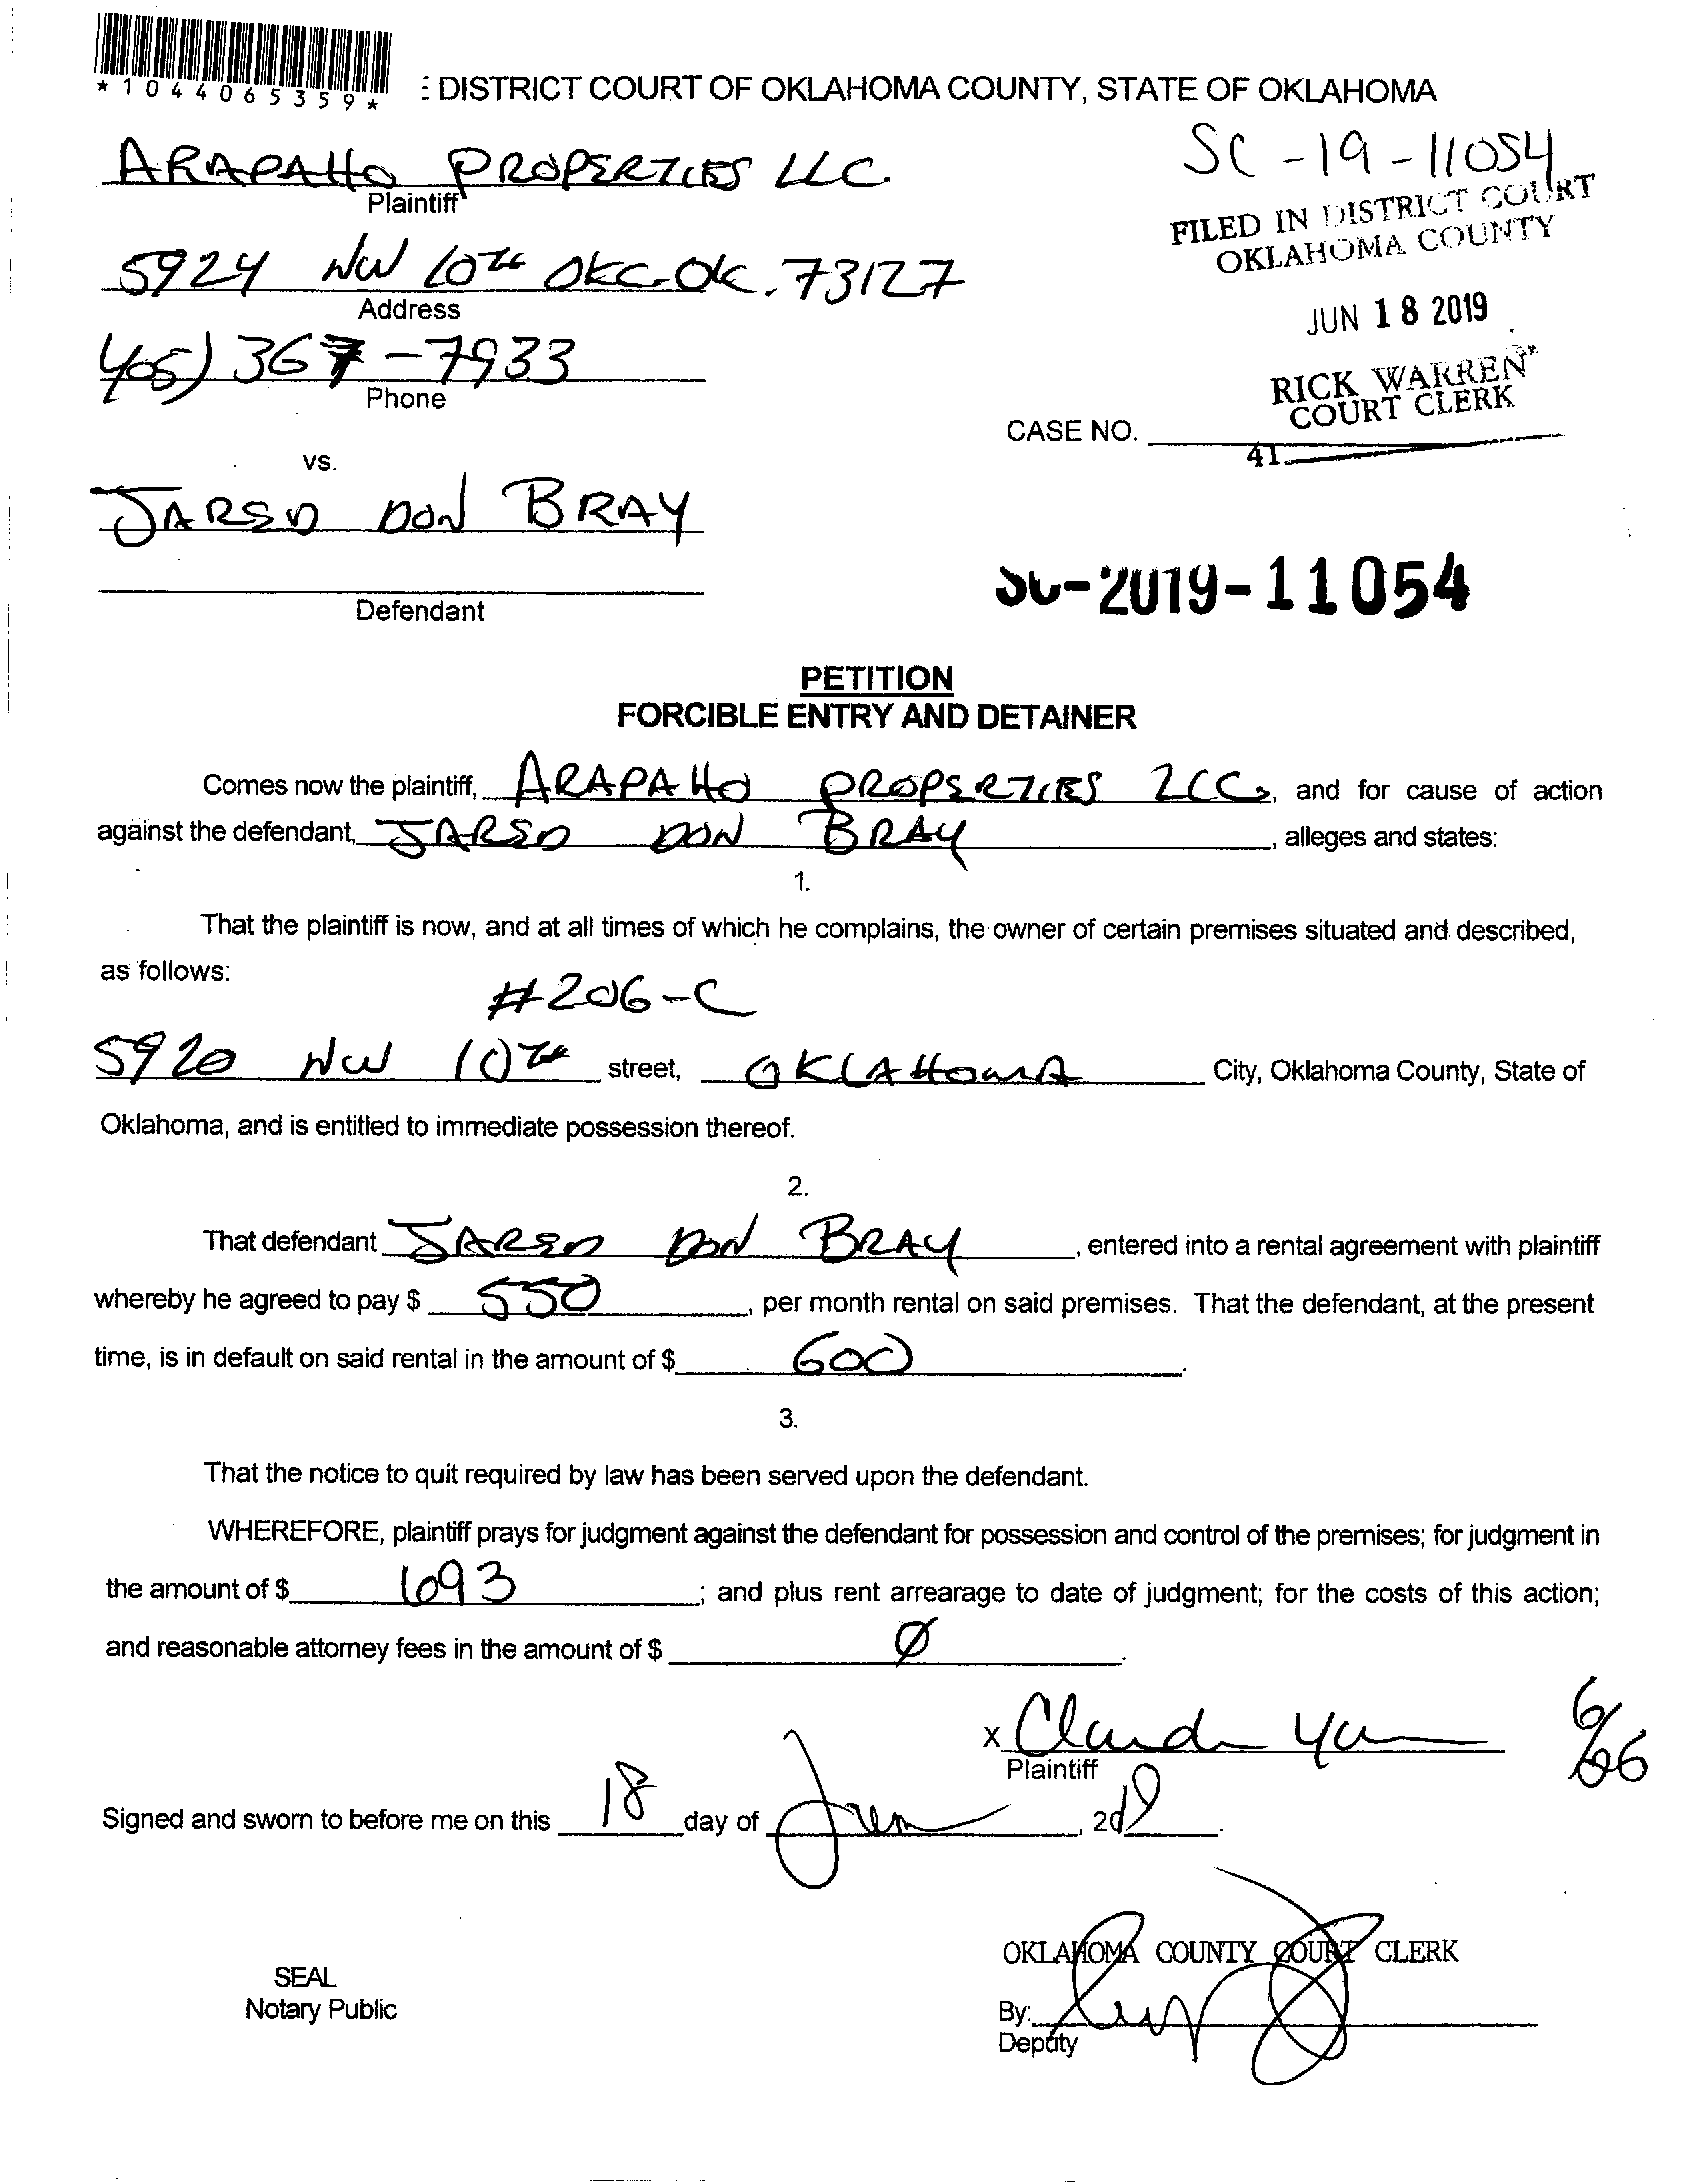 *1044065359*
: DISTRICT COURT OF OKLAHOMA COUNTY, STATE OF OKLAHOMA
ARAPAHO PROPERTIES LLC.
Plaintiff
SC-19-11054
FILED IN DISTRICT COURT
OKLAHOMA COUNTY
5924 NW 10th OKC-OK. 73127
Address
JUN 18 2019
405) 367-7933
Phone
RICK WARREN
COURT CLERK
CASE NO.
41
vs.
JARED DON BRAY
Defendant
SC-2019-11054
PETITION
FORCIBLE ENTRY AND DETAINER
Comes now the plaintiff, ARAPAHO PROPERTIES LLC, and for cause of action
against the defendant, JARED DON BRAY, alleges and states:
1.
That the plaintiff is now, and at all times of which he complains, the owner of certain premises situated and described,
as follows:
#206-C
5920 NW 10th street, OKLAHOMA City, Oklahoma County, State of
Oklahoma, and is entitled to immediate possession thereof.
2.
That defendant JARED DON BRAY, entered into a rental agreement with plaintiff
whereby he agreed to pay $ 550, per month rental on said premises. That the defendant, at the present
time, is in default on said rental in the amount of $ 600.
3.
That the notice to quit required by law has been served upon the defendant.
WHEREFORE, plaintiff prays for judgment against the defendant for possession and control of the premises; for judgment in
the amount of $ 1093; and plus rent arrearage to date of judgment; for the costs of this action;
and reasonable attorney fees in the amount of $ Ø.
X
Plaintiff
6/26
Signed and sworn to before me on this 18 day of June, 2019.
OKLAHOMA COUNTY COURT CLERK
SEAL
Notary Public
By:
Deputy